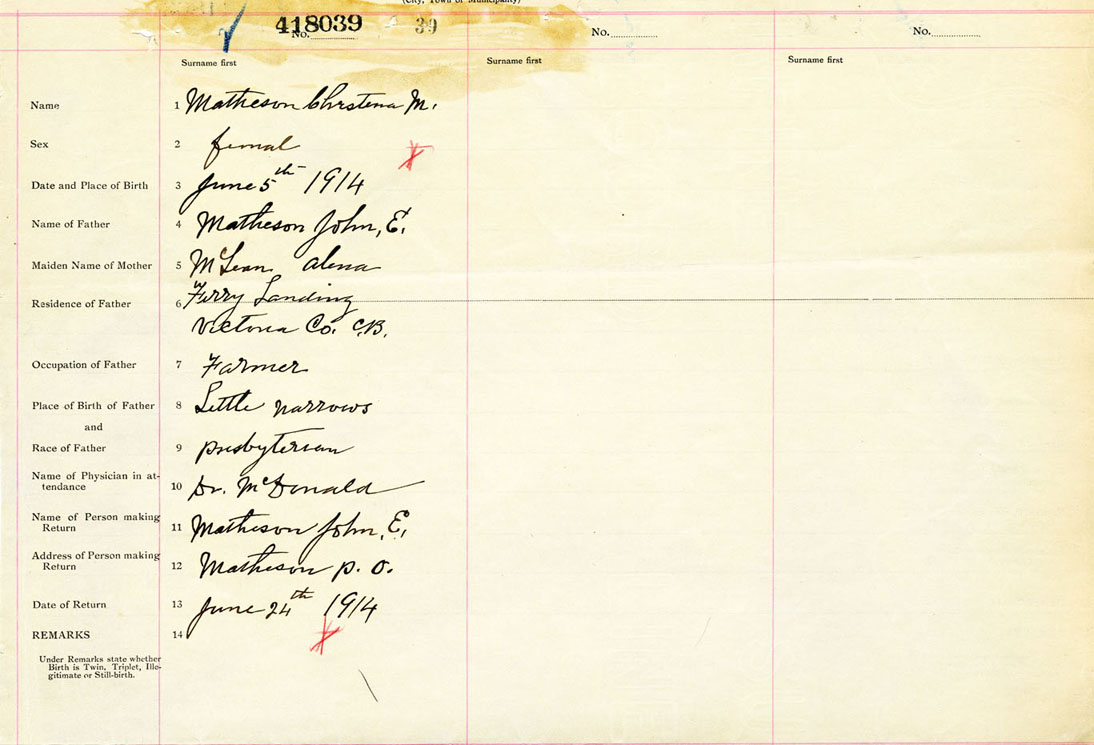 (City, Town or Municipality)
No. 418039 39
No.
No.
Surname first
Surname first
Surname first
Name 1 Matheson Chrstena M.
Sex 2 femal
Date and Place of Birth 3 June 5th 1914
Name of Father 4 Matheson John, E.
Maiden Name of Mother 5 McLean Alena
Residence of Father 6 Ferry Landing
Victoria Co. C.B.
Occupation of Father 7 Farmer
Place of Birth of Father 8 Little narrows
and
Race of Father 9 presbyterian
Name of Physician in at-
tendance 10 Dr. McDonald
Name of Person making
Return 11 Matheson John, E.
Address of Person making
Return 12 Matheson P. O.
Date of Return 13 June 24th 1914
REMARKS 14
Under Remarks state whether
Birth is Twin, Triplet, Ille-
gitimate or Still-birth.